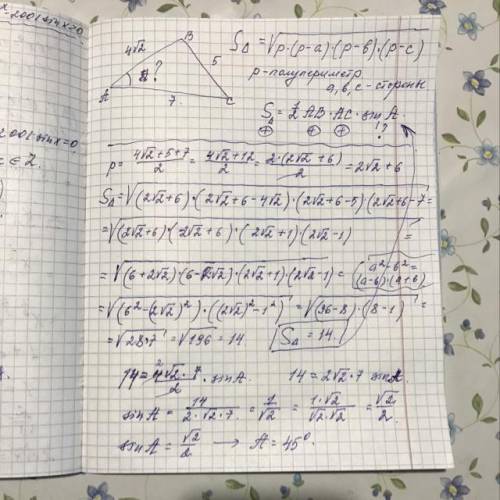 x-2001sinx=0
2001sinx=0
∈ Z.
B
4√2
5
A
?
7
C
S△ = √p·(p-a)·(p-б)·(p-c)
p-полупериметр
a,b,c-стороны
S△ = 1/2 AB · AC · sin A
⊕ ⊕ ⊕ !?
p = (4√2+5+7)/2 = (4√2+12)/2 = 2·(2√2+6)/2 = 2√2+6
S△ = √(2√2+6)·(2√2+6-4√2)·(2√2+6-5)(2√2+6-7 =
= √(2√2+6)·(-2√2+6)·(2√2+1)(2√2-1) =
= √(6+2√2)·(6-2√2)·(2√2+1)(2√2-1) = (a²-b²=
(a-b)(a+b)
= √(6²-(2√2)²)·((2√2)²-1²) = √(36-8)·(8-1) =
= √28·7 = √196 = 14 S△ = 14.
14 = 4√2·7/2 · sinA 14 = 2√2·7 sinA.
sinA = 14/(2·√2·7) = 1/√2 = 1·√2/(√2·√2) = √2/2.
sinA = √2/2 → A = 45°.